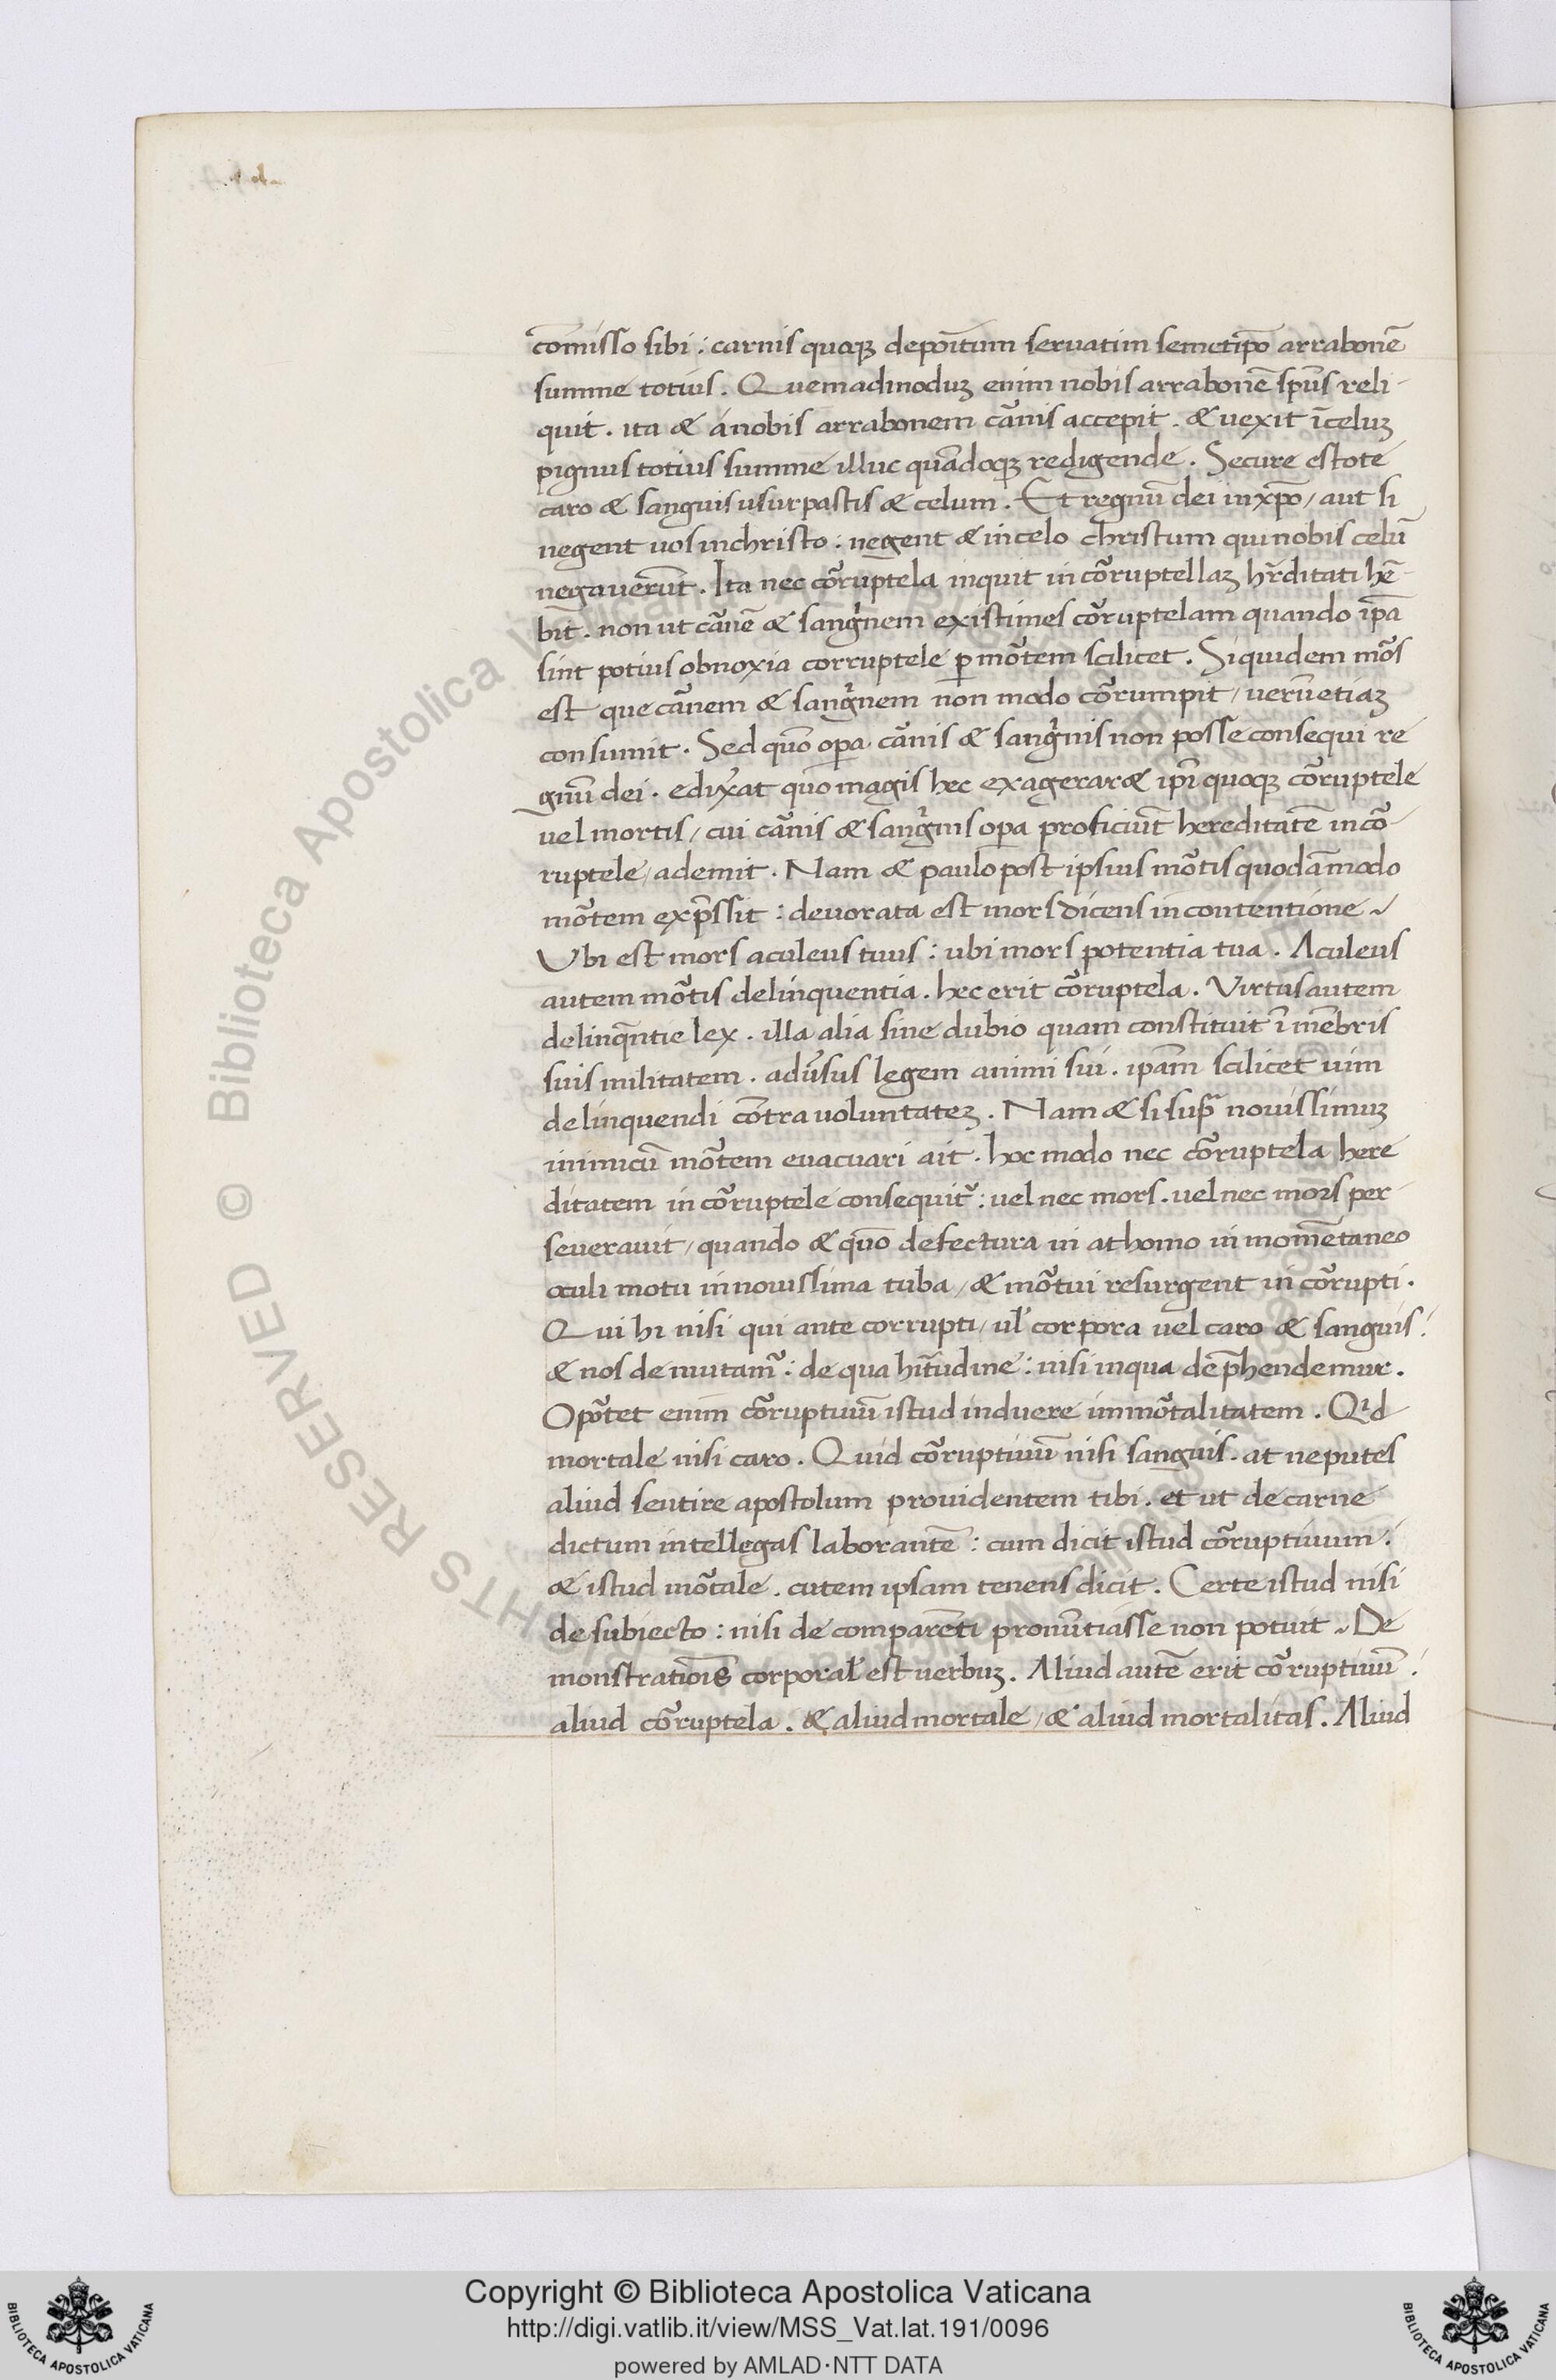 com̄isso sibi : carnis quoqꝫ depoĩtum servatim semetip̄o arrabonē
summe totius . Quemadmoduꝫ enim nobis arrabonē sp̄us reli-
quit . ita & ánobis arrabonem cãnis accepit . & vexit ī celuꝫ
pignus totius summe illuc quādoqꝫ redigende . Secure estote
caro & sanguis usurpastis & celum . Et regnū dei in xp̄o / aut si
negent vos in christo : negent & in celo christum qui nobis celū
negaverūt . Ita nec cõruptela inquit in cõruptellaꝫ hr̄ditati hē-
bit . non ut cãnē & sangͥnem existimes cõruptelam quando ip̄a
sint potius obnoxia corruptele ꝑ mõtem scilicet . Siquidem mõs
est que cãnem & sangͥnem non modo cõrumpit / verūetiaꝫ
consumit . Sed quō oꝑa cãnis & sangͥnis non posse consequi re
gnū dei . edixat quō magis hec exagerar& ip̄i quoqꝫ cõruptele
vel mortis / cui cãnis & sangͥnis oꝑa proficiūt hereditatē in cõ-
ruptele / ademit . Nam & paulo post ipsius mõtis quodāmodo
mõtem exp̄ssit : devorata est mors dicens in contentione ~
Ubi est mors aculeus tuus : ubi mors potentia tua . Aculeus
autem mõtis delinquentia . hec erit cõruptela . Virtus autem
delinq̄ntie lex . illa alia sine dubio quam constituit ī mēbris
suis militatem . adṽsus legem animi sui . ip̄am scilicet vim
delinquendi cõtra voluntateꝫ . Nam & si sup̃ novissimuꝫ
inimicū mõtem evacuari ait . hoc modo nec cõruptela here
ditatem in cõruptele consequit᷑ : vel nec mors . vel nec mors per-
severavit / quando & quō defectura in athomo in momētaneo
oculi motu in novissima tuba / & mõtui resurgent in cõrupti .
Qui hi nisi qui ante corrupti / ul̉ corpora vel caro & sanguis !
& nos de mutam᷑ : de qua hit̃udine : nisi in qua dep̄hendemur .
Opõtet enim cõruptivū istud induere immõtalitatem . Qͥd
mortale nisi caro . Quid cõruptivū nisi sanguis . at ne putes
aliud sentire apostolum providentem tibi . et ut de carne
dictum intellegas laborantē : cum dicit istud cõruptivum !
& istud mõtale . cutem ipsam tenens dicit . Certe istud nisi
de subiecto : nisi de comparēti pronūtiasse non potuit ~ De
monstratiōis corporal̉ est verbuꝫ . Aliud autē erit cõruptivū !
aliud cõruptela . & aliud mortale / & aliud mortalitas . Aliud
© Biblioteca Apostolica Vaticana
RESERVED
Copyright © Biblioteca Apostolica Vaticana
http://digi.vatlib.it/view/MSS_Vat.lat.191/0096
powered by AMLAD·NTT DATA
BIBLIOTECA APOSTOLICA VATICANA
BIBLIOTECA APOSTOLICA VATICANA